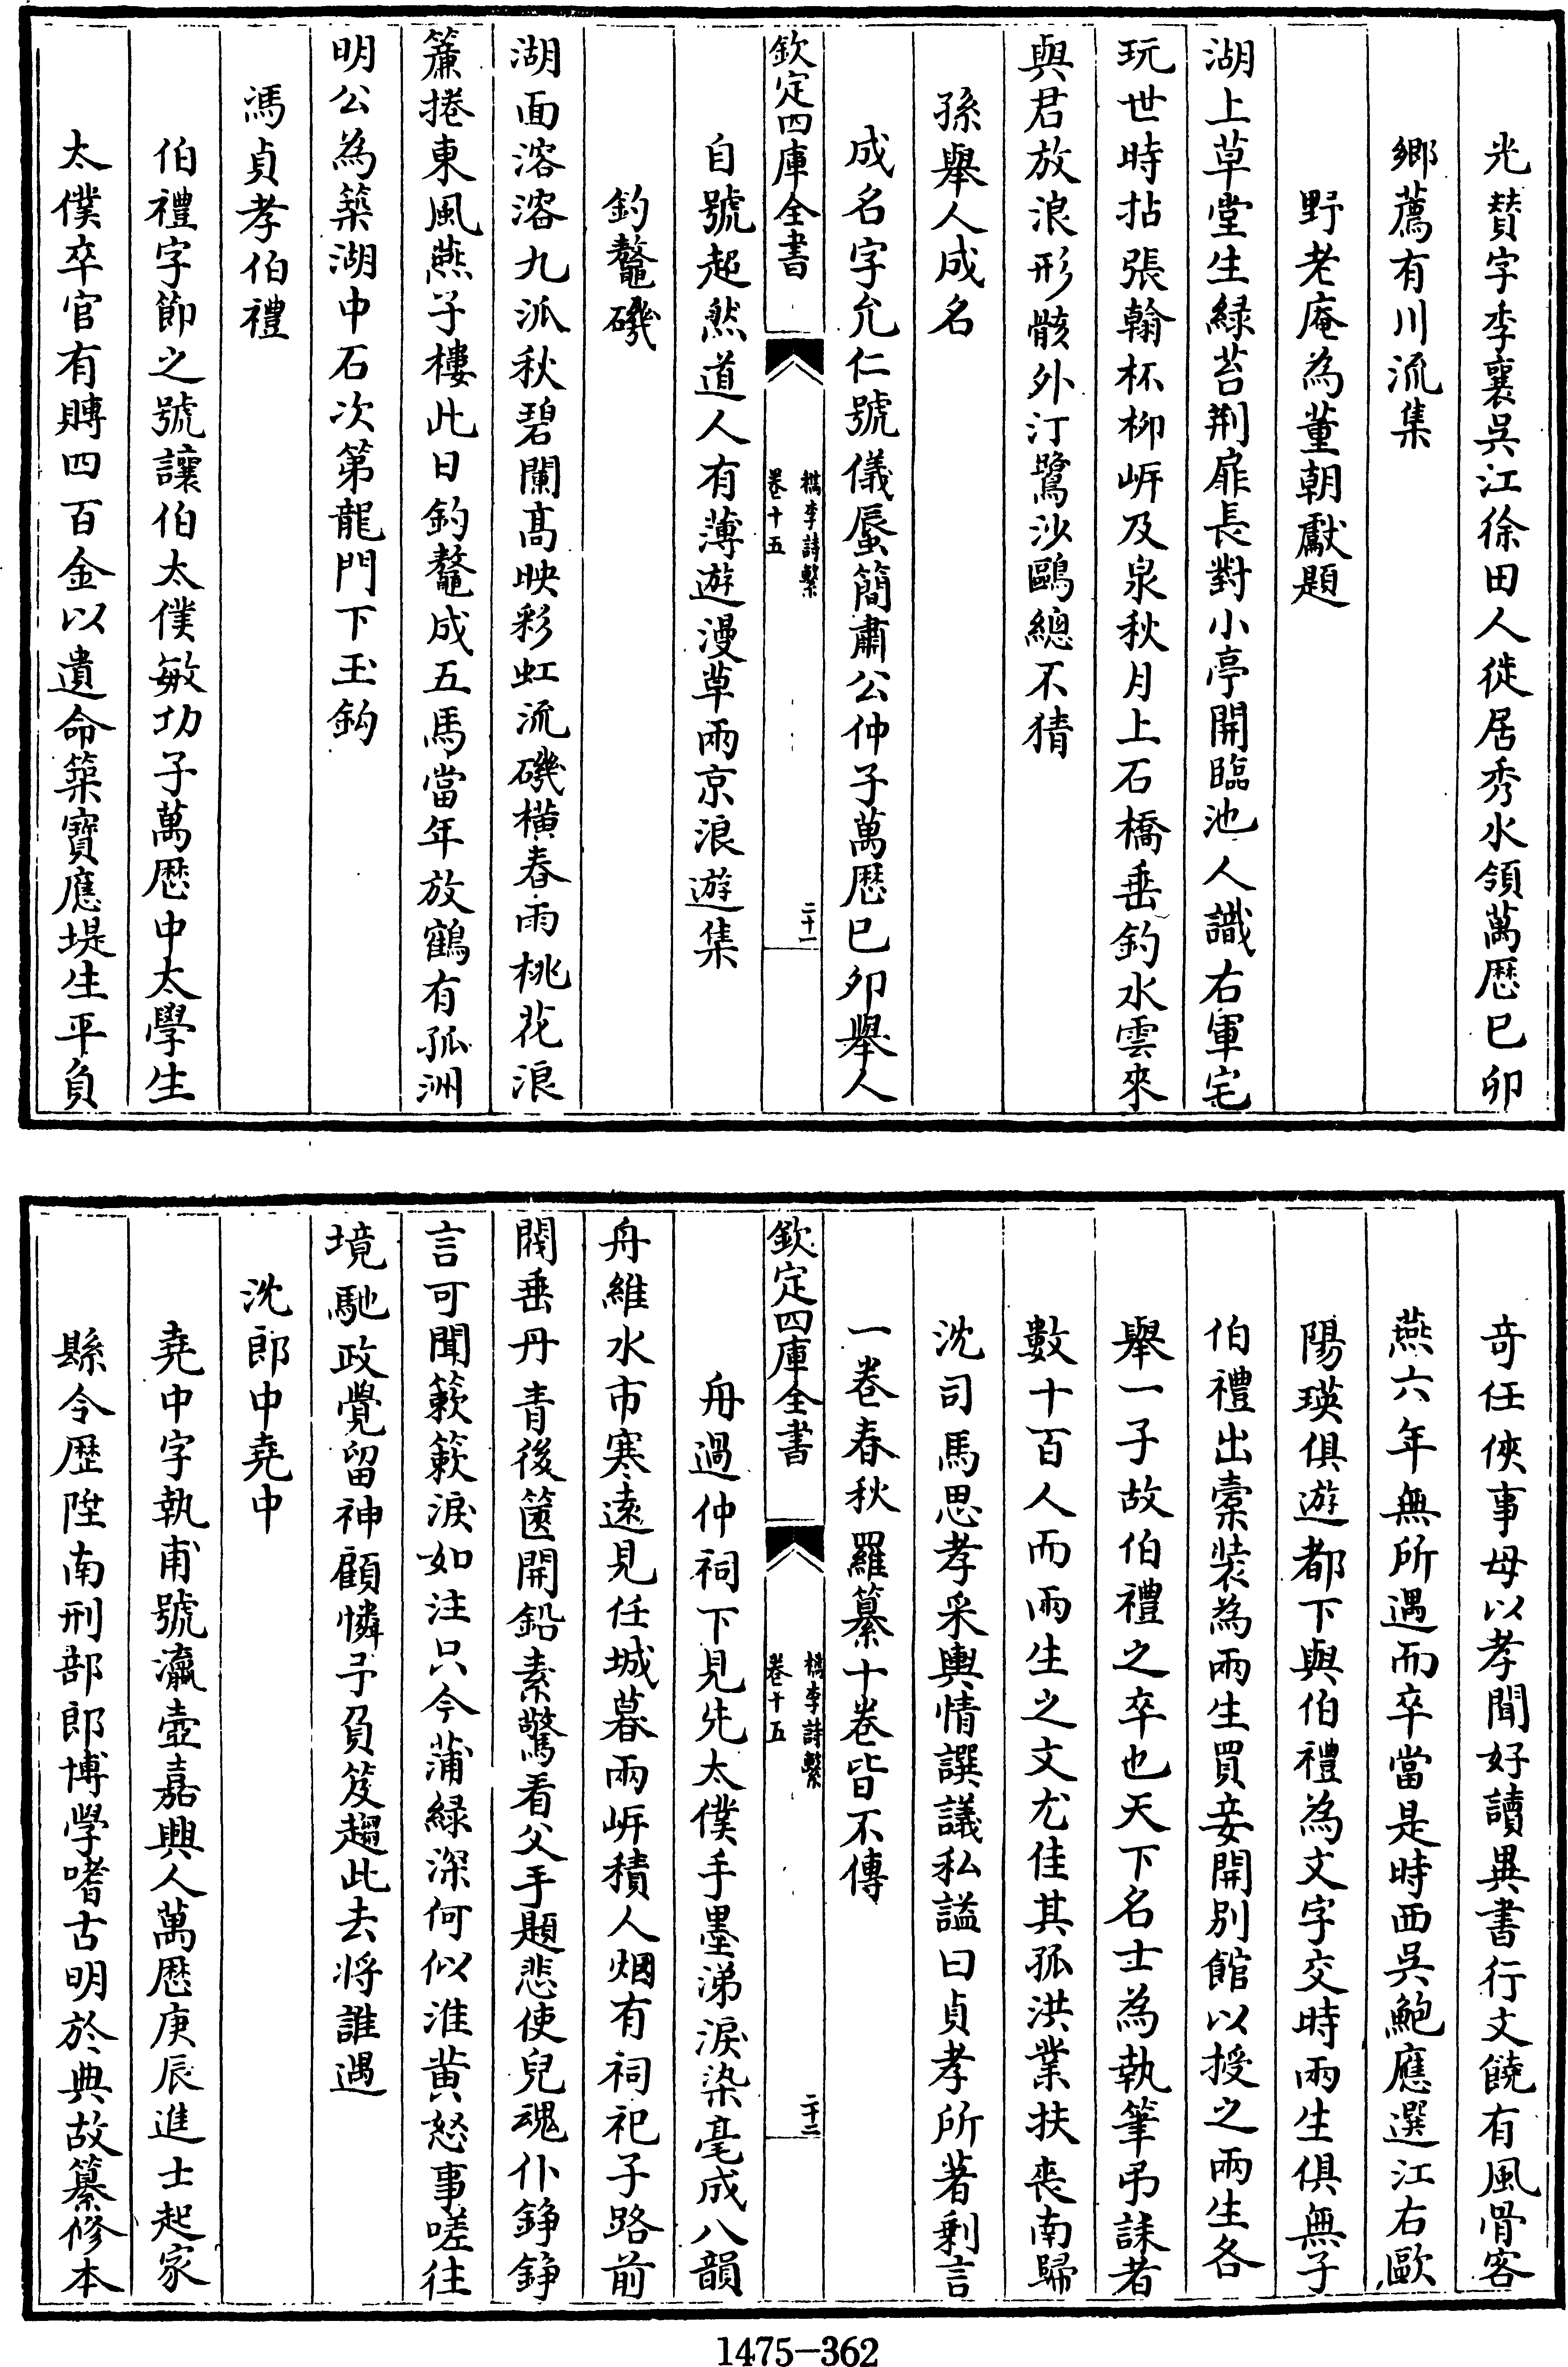 光贊字季襄吳江徐田人徙居秀水領萬厯己卯
鄉薦有川流集
野老庵為董朝獻題
湖上草堂生緑苔荆扉長對小亭開臨池人識右軍宅
玩世時拈張翰杯柳㟁及泉秋月上石橋垂釣水雲來
與君放浪形骸外汀鷺沙鷗總不猜
孫舉人成名
成名字允仁號儀蜃簡肅公仲子萬厯己卯舉人
欽定四庫全書
檇李詩繫
卷十五
二十一
自號超然道人有薄遊漫草兩京浪遊集
釣鼇磯
湖面溶溶九派秋碧闌髙映彩虹流磯横春雨桃花浪
簾捲東風燕子樓此日釣鼇成五馬當年放鶴有孤洲
明公為築湖中石次第龍門下玉鈎
馮貞孝伯禮
伯禮字節之號讓伯太僕敏功子萬厯中太學生
太僕卒官有賻四百金以遺命築寳應堤生平負
竒任俠事母以孝聞好讀異書行文饒有風骨客
燕六年無所遇而卒當是時西吳鮑應選江右歐
陽瑛俱遊都下與伯禮為文字交時兩生俱無子
伯禮出槖装為兩生買妾開别館以授之兩生各
舉一子故伯禮之卒也天下名士為執筆弔誄者
數十百人而兩生之文尤佳其孤洪業扶喪南歸
沈司馬思孝采輿情譔議私謚曰貞孝所著剩言
一卷春秋羅纂十卷皆不傳
欽定四庫全書
檇李詩繫
卷十五
二十二
舟過仲祠下見先太僕手墨涕淚染毫成八韻
舟維水市寒逺見任城暮兩㟁積人烟有祠祀子路前
閣垂丹青後篋開鉛素驚看父手題悲使兒魂仆錚錚
言可聞簌簌淚如注只今蒲緑深何似淮黄怒事嗟往
境馳政覺留神顧憐予負笈趨此去将誰遇
沈郎中堯中
堯中字執甫號瀛壺嘉興人萬厯庚辰進士起家
縣令歴陞南刑部郎博學嗜古明於典故纂修本
1475-362